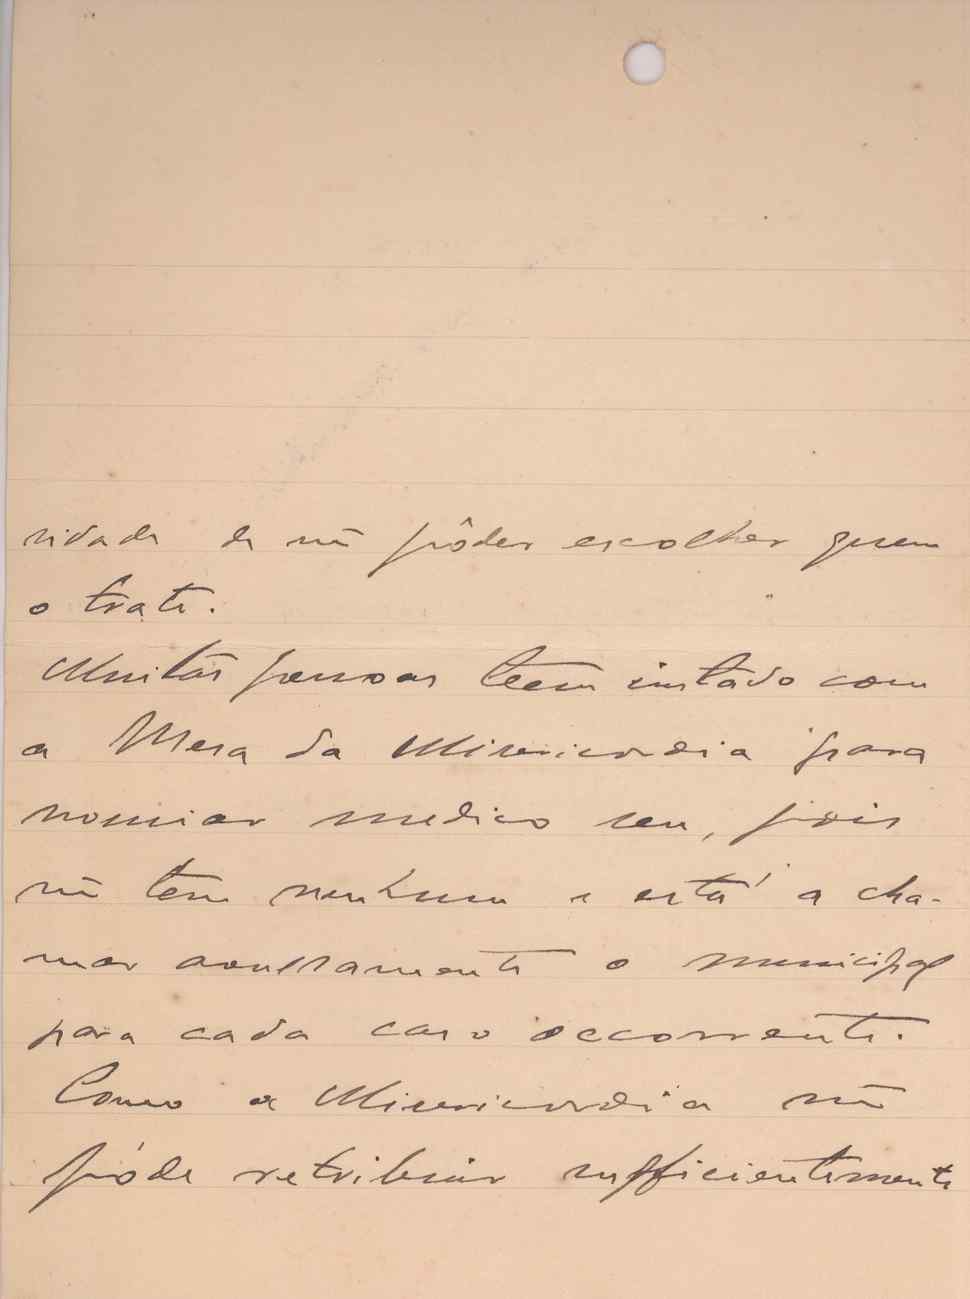 sidade de nõ pôder escolher quem
o trate.
Muitas pessoas teem instado com
a Mesa da Misericordia para
nomear medico seu, pois
nõ tem nenhum e está a cha-
mar avulsamente o municipal
para cada caso occorrente.
Como a Misericordia nõ
póde retribuir sufficientemente